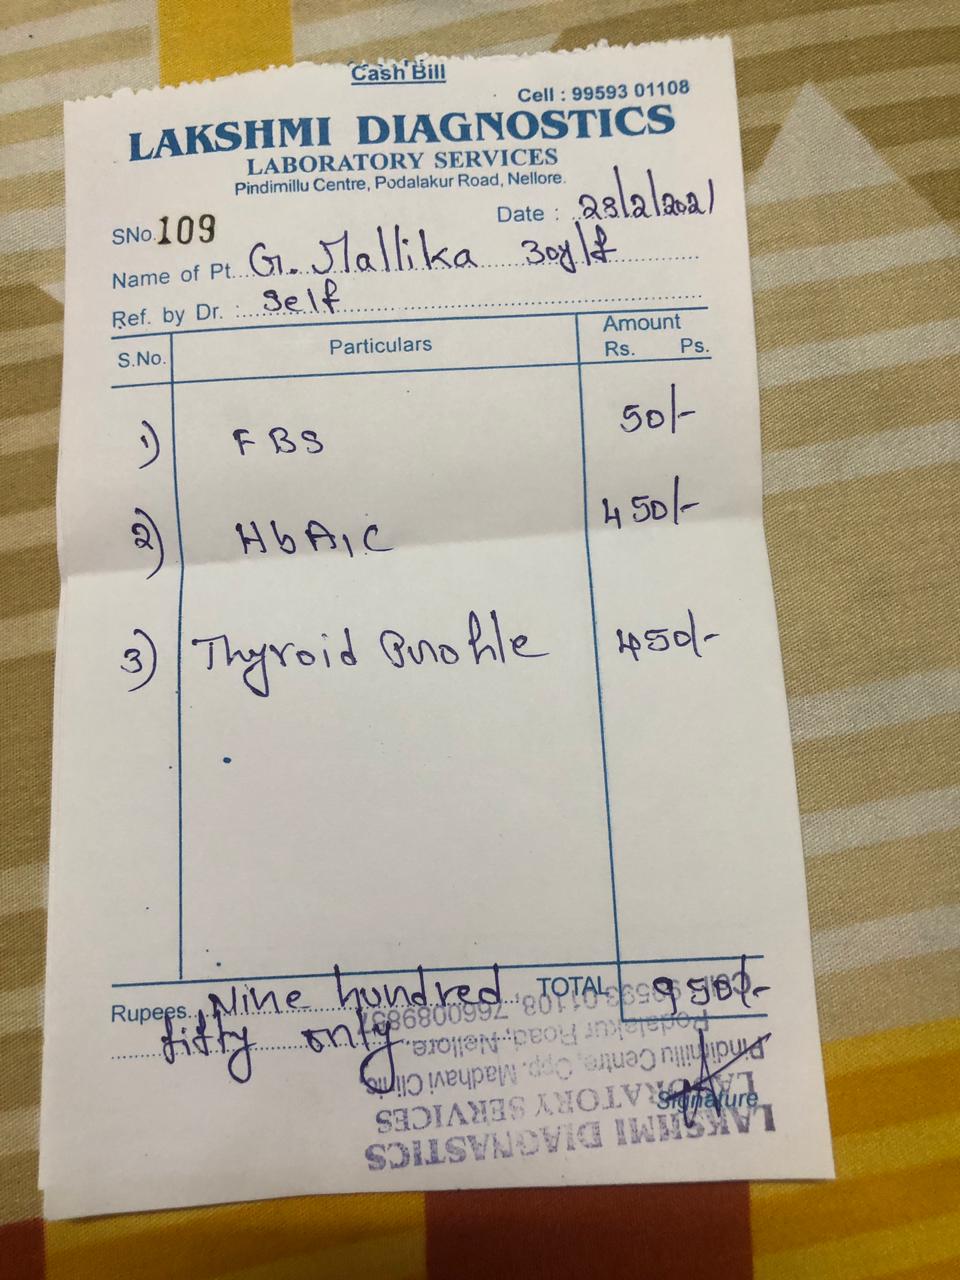 Cash Bill
Cell : 99593 01108
LAKSHMI DIAGNOSTICS
LABORATORY SERVICES
Pindimillu Centre, Podalakur Road, Nellore.
SNo. 109 Date : 23/2/2021
Name of Pt. G. Mallika 30y/f
Ref. by Dr. : Self
S.No. Particulars Amount
Rs. Ps.
1) FBS 50/-
2) HbA1C 450/-
3) Thyroid Profile 450/-
TOTAL 950/-
Rupees Nine hundred
fifty only
Signature
LAKSHMI DIAGNASTICS
LABORATORY SERVICES
Pindimillu Centre, Opp. Madhavi Clinic
Podalakur Road, Nellore.
Cell: 99593 01108,